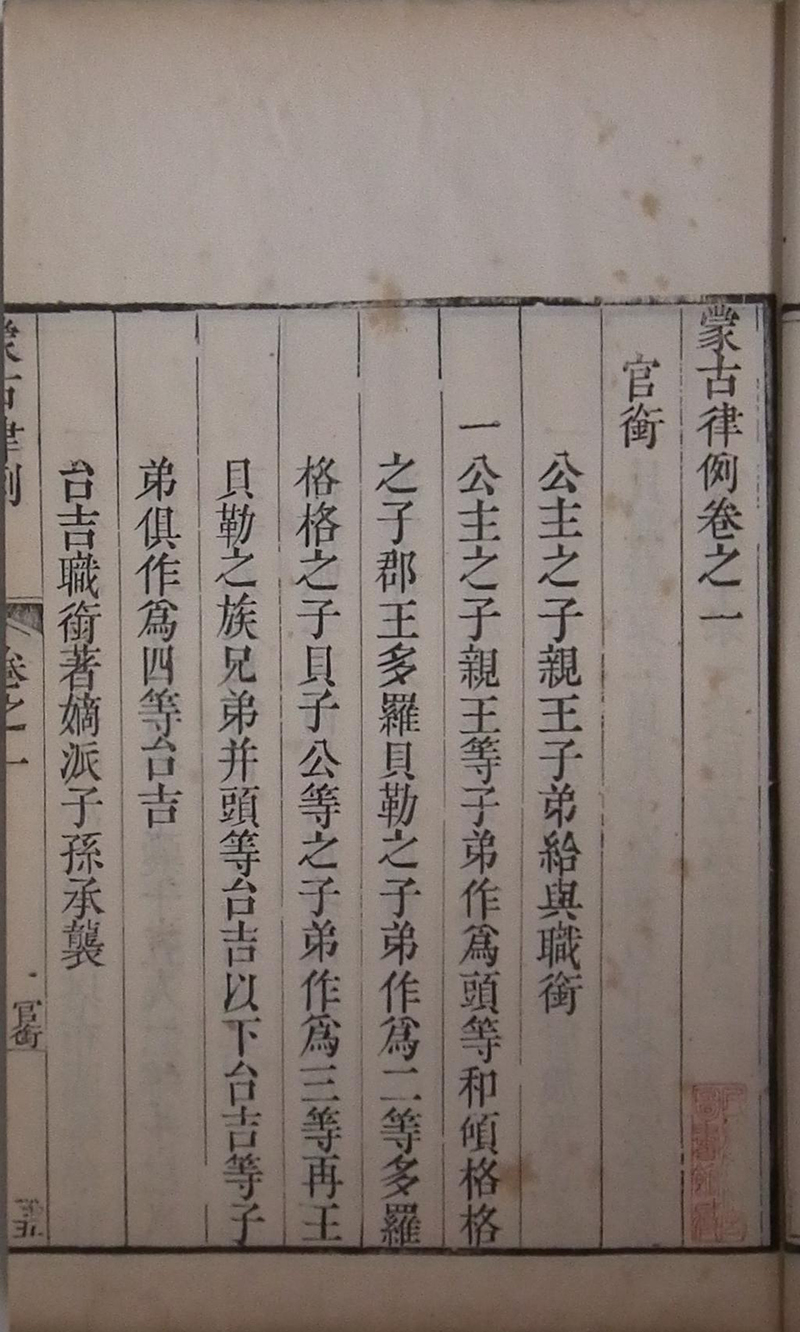 蒙古律例卷之一
官銜
公主之子親王子弟給與職銜
一公主之子親王等子弟作爲頭等和碩格格
之子郡王多羅貝勒之子弟作爲二等多羅
格格之子貝子公等之子弟作爲三等再王
貝勒之族兄弟并頭等台吉以下台吉等子
弟俱作爲四等台吉
台吉職銜著嫡派子孫承襲
蒙古律例
卷之一
官銜
五